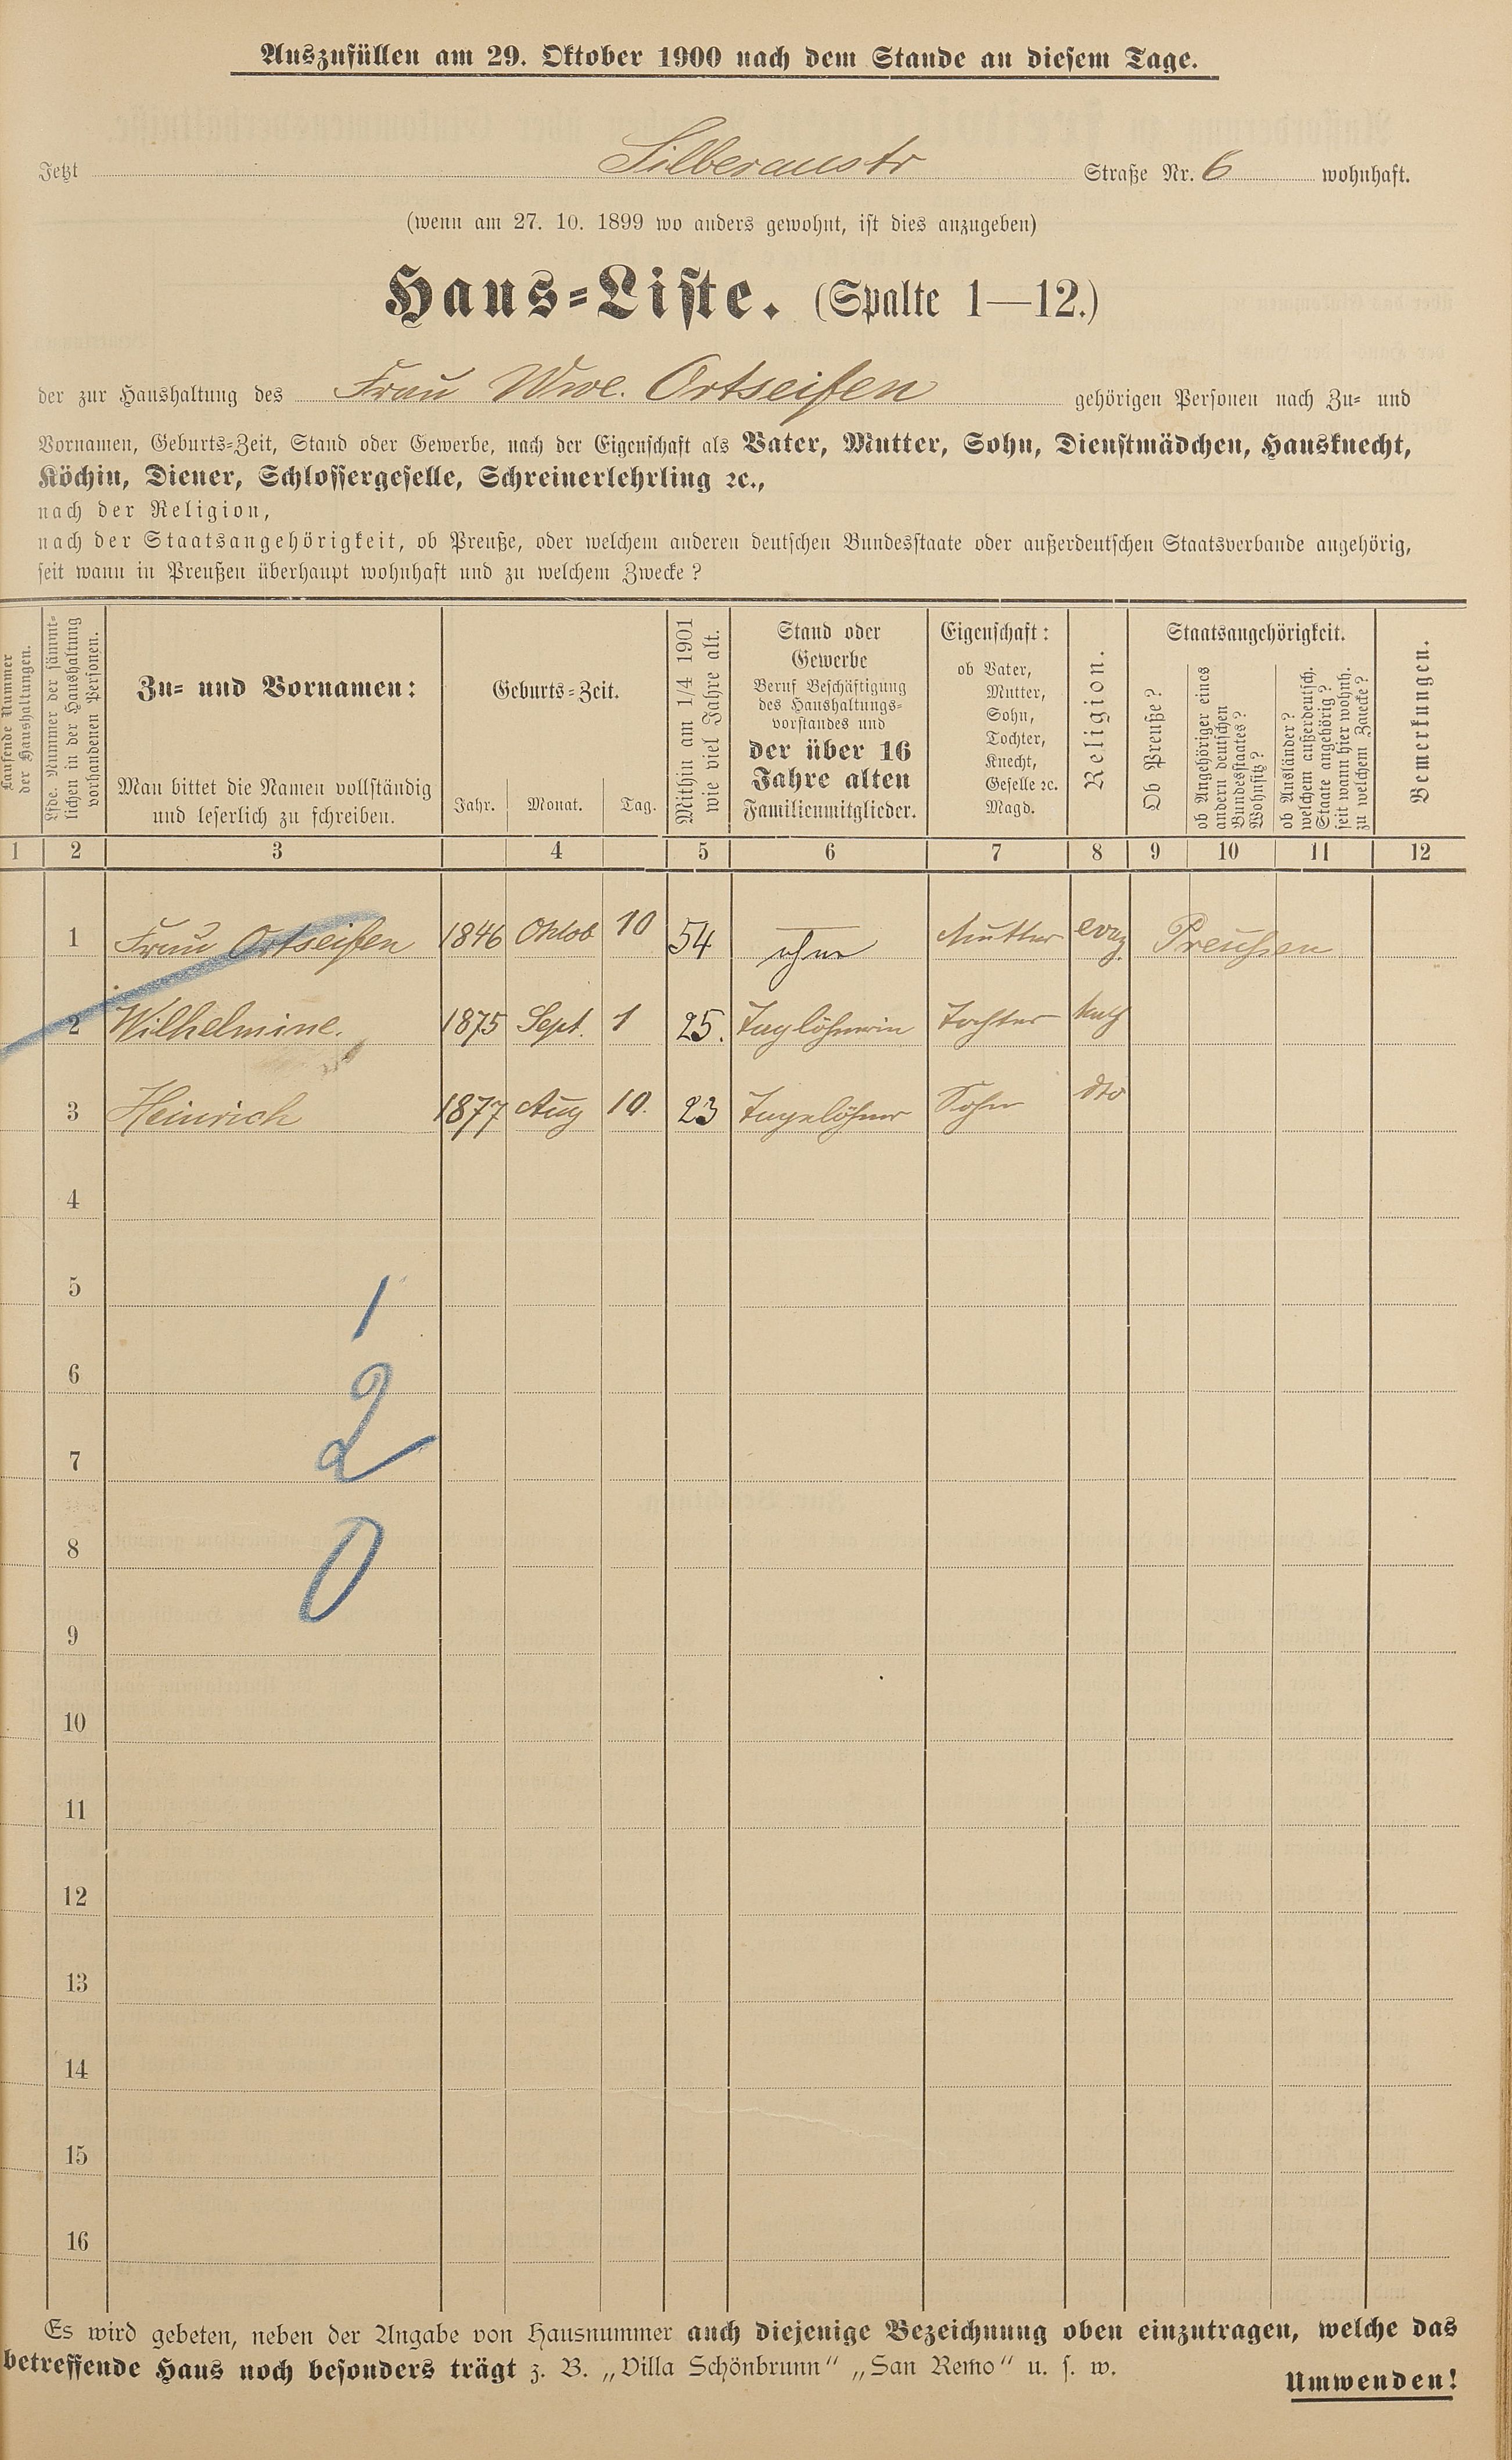 Auszufüllen am 29. Oktober 1900 nach dem Stande an diesem Tage.
Jetzt Silberaustr Straße Nr. 6 wohnhaft.
(wenn am 27. 10. 1899 wo anders gewohnt, ist dies anzugeben)
Haus-Liste. (Spalte 1—12.)
der zur Haushaltung des Frau Wwe. Ortseifen gehörigen Personen nach Zu- und
Vornamen, Geburts-Zeit, Stand oder Gewerbe, nach der Eigenschaft als Vater, Mutter, Sohn, Dienstmädchen, Hausknecht,
Köchin, Diener, Schlossergeselle, Schreinerlehrling ꝛc.,
nach der Religion,
nach der Staatsangehörigkeit, ob Preuße, oder welchem anderen deutschen Bundesstaate oder außerdeutschen Staatsverbande angehörig,
seit wann in Preußen überhaupt wohnhaft und zu welchem Zwecke?
Laufende Nummer
der Haushaltungen.
Lfde. Nummer der sämmt-
lichen in der Haushaltung
vorhandenen Personen.
Zu- und Vornamen:
Man bittet die Namen vollständig
und leserlich zu schreiben.
Geburts-Zeit.
Jahr. Monat. Tag.
Mithin am 1/4 1901
wie viel Jahre alt.
Stand oder
Gewerbe
Beruf Beschäftigung
des Haushaltungs-
vorstandes und
der über 16
Jahre alten
Familienmitglieder.
Eigenschaft:
ob Vater,
Mutter,
Sohn,
Tochter,
Knecht,
Geselle ꝛc.
Magd.
Religion.
Staatsangehörigkeit.
Ob Preuße?
ob Angehöriger eines
andern deutschen
Bundesstaates?
Wohnsitz?
ob Ausländer?
welchem außerdeutsch.
Staate angehörig?
seit wann hier wohnh.
zu welchem Zwecke?
Bemerkungen.
1 2 3 4 5 6 7 8 9 10 11 12
1 Frau Ortseifen 1846 Oktob 10 54 ohne Mutter evng. Preußen
2 Wilhelmine. 1875 Sept. 1 25. Taglöhnerin Tochter kath
3 Heinrich 1877 Aug 10. 23 Tagelöhner Sohn dto
4
5
1
6
2
7
8
0
9
10
11
12
13
14
15
16
Es wird gebeten, neben der Angabe von Hausnummer auch diejenige Bezeichnung oben einzutragen, welche das
betreffende Haus noch besonders trägt z. B. „Villa Schönbrunn“ „San Remo“ u. s. w.
Umwenden!